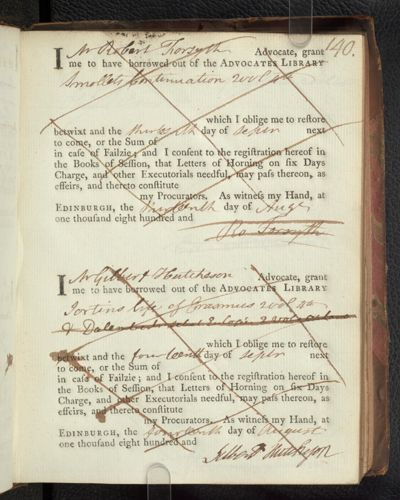 140.
I Mr Robert Forsyth Advocate, grant
me to have borrowed out of the ADVOCATES LIBRARY
Smollets Continuation 2 vol 4to
which I oblige me to restore
betwixt and the thirteenth day of Septr next
to come, or the Sum of
in case of Failzie; and I consent to the registration hereof in
the Books of Session, that Letters of Horning on six Days
Charge, and other Executorials needful, may pass thereon, as
effeirs, and thereto constitute
my Procurators. As witness my Hand, at
EDINBURGH, the thirteenth day of Augt
one thousand eight hundred and
Ro. Forsyth
I Mr Gilbert Hutcheson Advocate, grant
me to have borrowed out of the ADVOCATES LIBRARY
Jortins life of Erasmus 2 vol 4to
which I oblige me to restore
betwixt and the fourteenth day of Septr next
to come, or the Sum of
in case of Failzie; and I consent to the registration hereof in
the Books of Session, that Letters of Horning on six Days
Charge, and other Executorials needful, may pass thereon, as
effeirs, and thereto constitute
my Procurators. As witness my Hand, at
EDINBURGH, the fourteenth day of August
one thousand eight hundred and
Gilbert Hutcheson